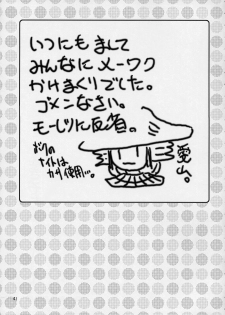 いつにもまして
みんなにメーワク
かけまくりでした。
ゴメンなさい。
モーレツに反省。
ボクの
ナイトは
カサ使用…。
愛山。